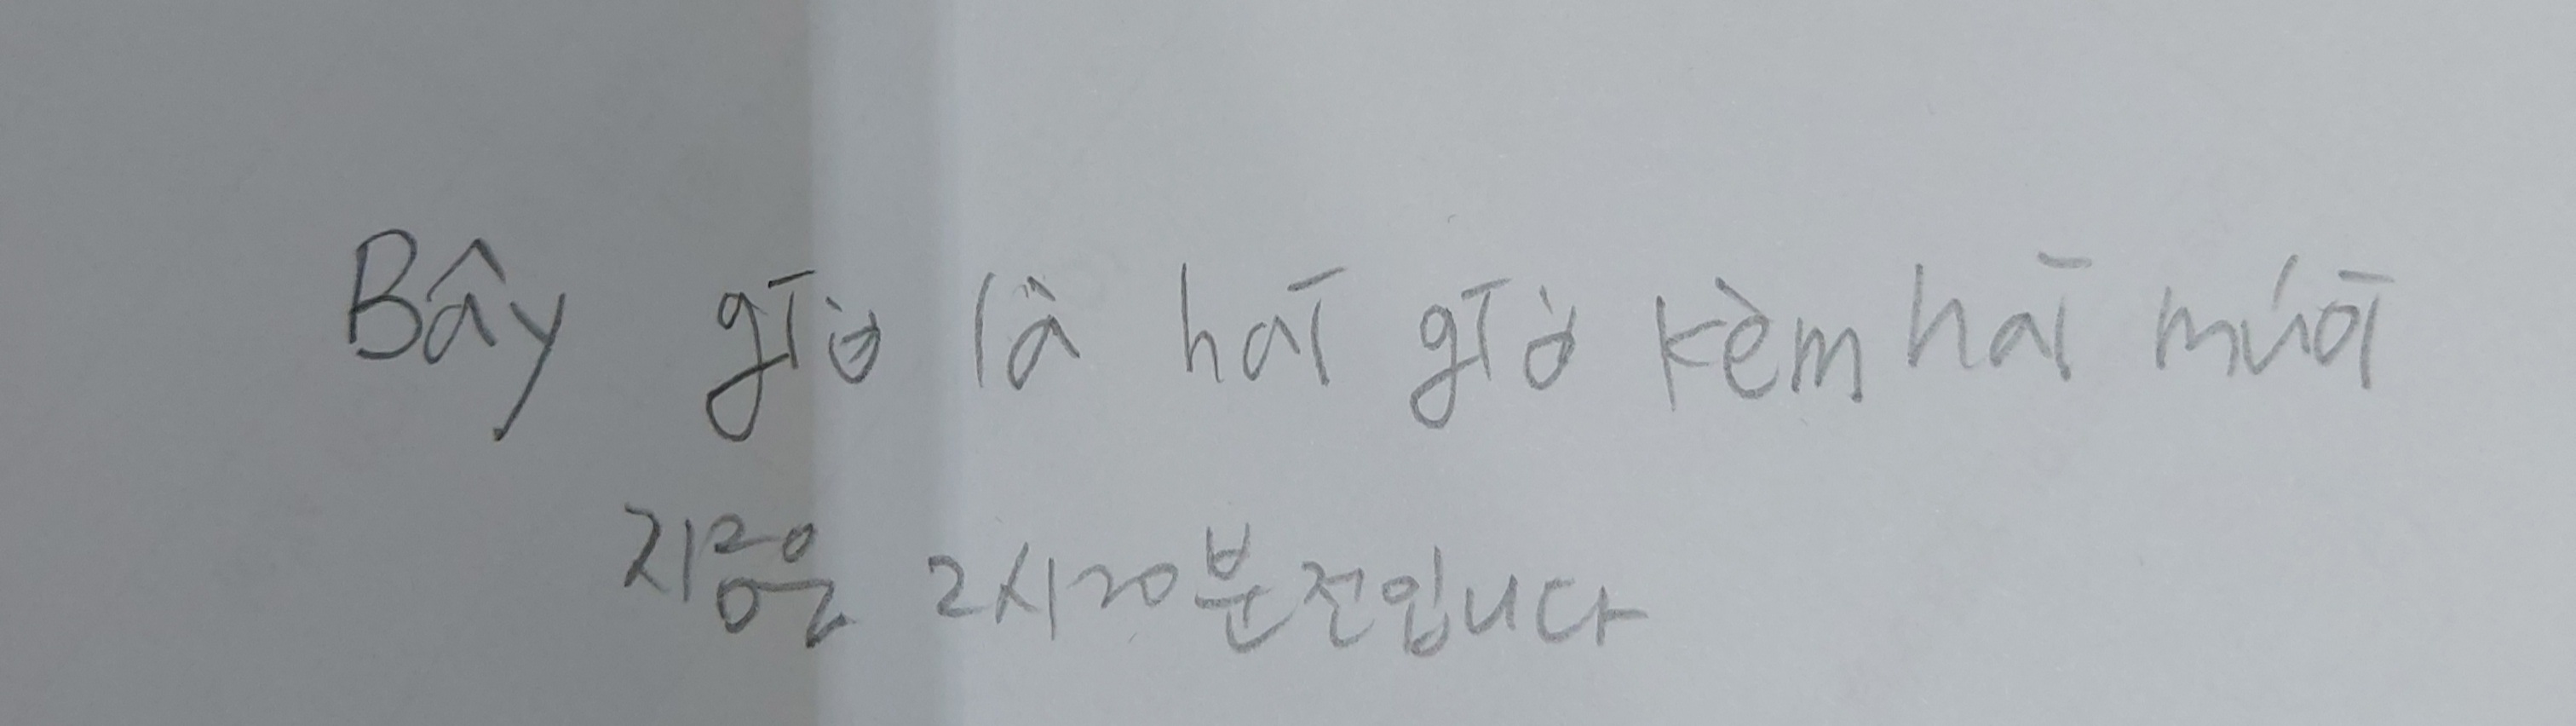 Bây giờ là hai giờ kèm hai mươi
지금은 2시20분전입니다